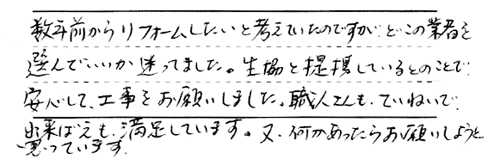 数年前からリフォームしたいと考えていたのですが、どこの業者を
選んでいいか迷ってました。生協と提携しているとのことで
安心して、工事をお願いしました。職人さんも、ていねいで
出来ばえも、満足しています。又、何かあったらお願いしようと
思っています。